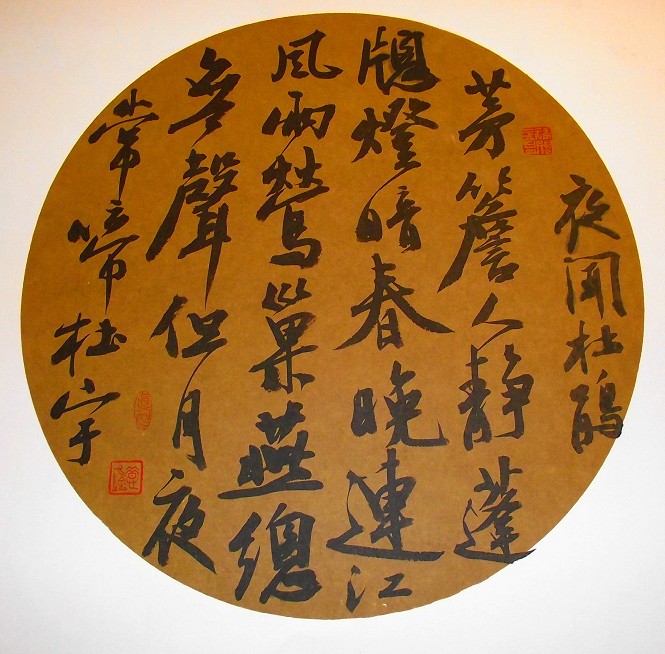 夜聞杜鵑
茅簷人靜蓬
牕燈暗春晚連江
風雨鶯巢燕總
無聲但月夜
常啼杜宇